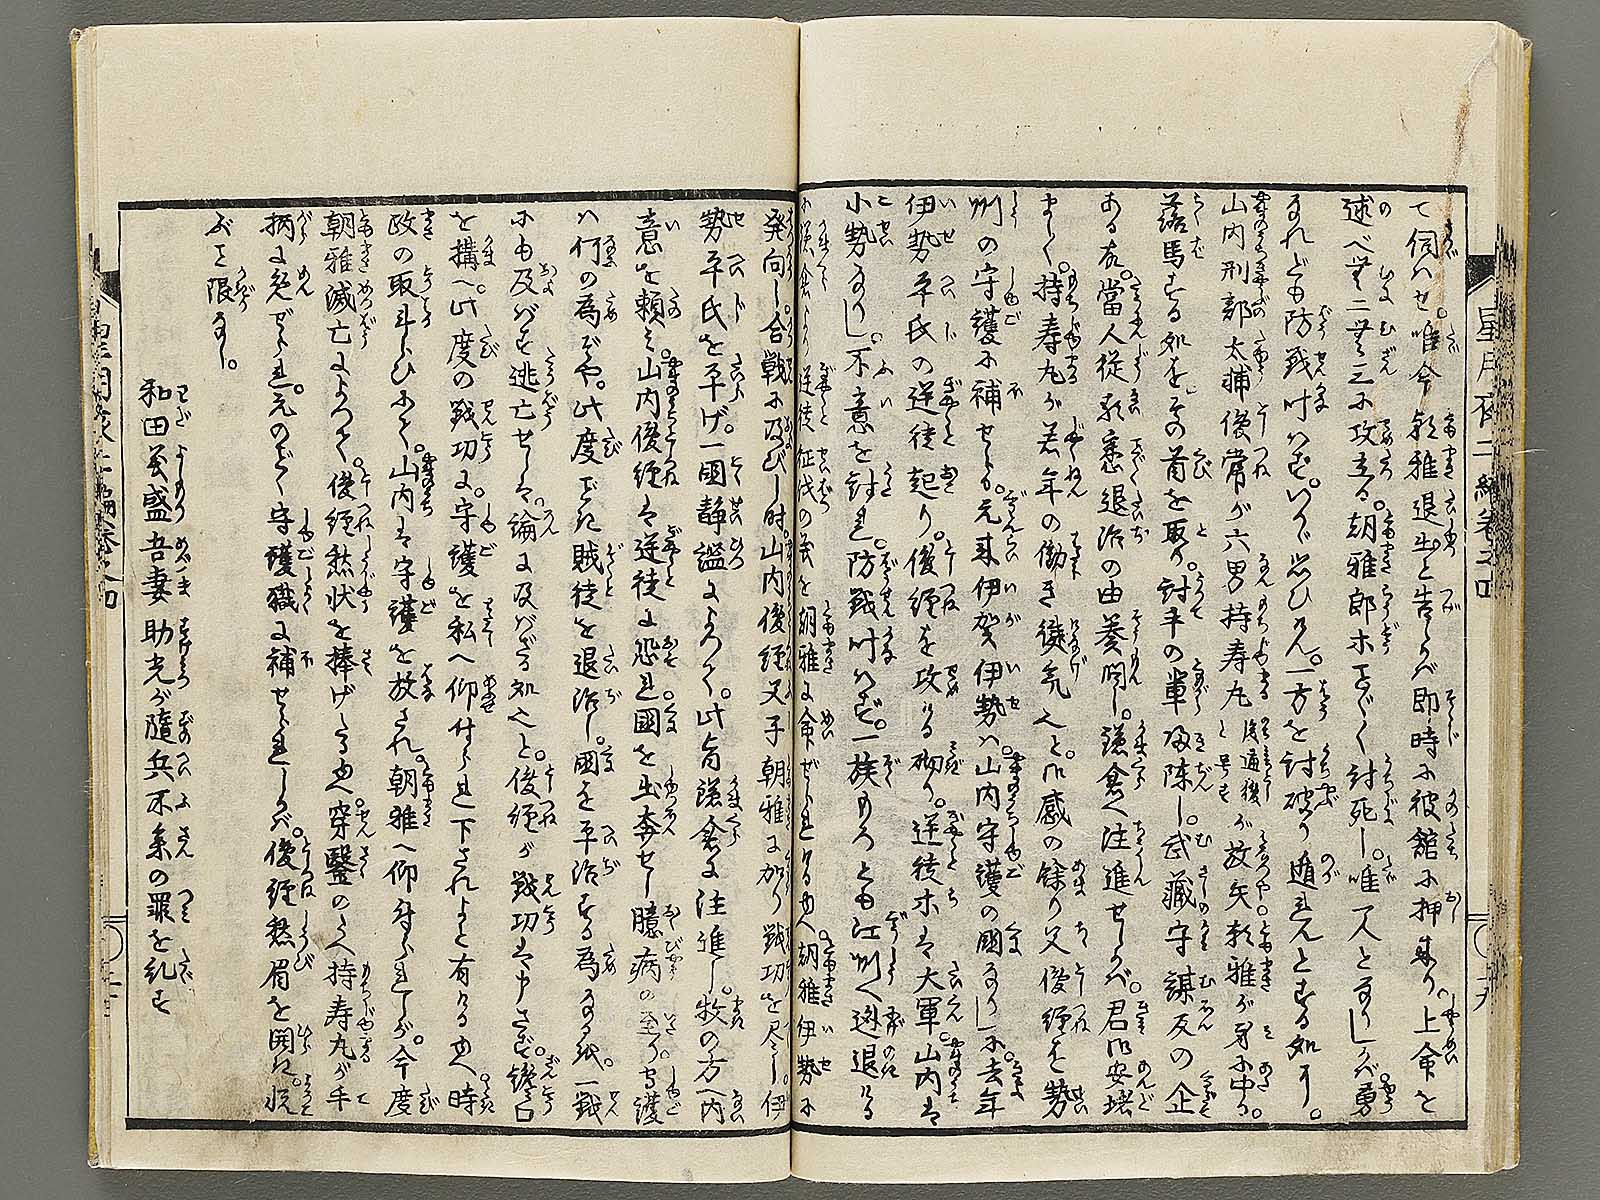 て伺ハせ。唯今朝雅退出と告しかバ即時に彼舘に押来り。上命を
述べ無二無三に攻立る。朝雅郎等悉く討死し。唯一人となりしかバ勇
なれども防戦叶ハず。いかゞ思ひけん。一方を討破り遁れんとする処に。
山内刑部太輔俊常が六男持寿丸後通後と号すが放矢朝雅が身に中る。
落馬する処を。その首を取る。討手の輩帰陣し。武藏守謀反の企
ある故。當人従類悉退治の由奏問し。鎌倉へ注進せしかバ。君御安堵
まし〳〵。持寿丸が若年の働き健気也と。御感の餘り父俊經を勢
州の守護に補せらる。元来伊賀伊勢ハ。山内守護の國なりしに。去年
伊勢平氏の逆徒起り。俊經を攻る砌り。逆徒等は大軍。山内は
小勢なりし。不意を討れ。防戦叶ハず。一族もろとも江州へ迯退ける
に鎌倉より逆徒征伐の義を朝雅に命ぜられける也。朝雅伊勢に
発向し。合戦に及びし時。山内俊經父子朝雅に加り戦功を尽し。伊
勢平氏を平げ。一國静謐によつて。此旨鎌倉に注進し。牧の方へ内
意を頼ミ。山内俊經は逆徒に恐れ國を出奔せし臆病の至り。守護
ハ何の為ぞや。此度ごとき賊徒を退治し。國を平治する為なる哉。一戦
にも及バず逃亡せしは。論に及バざる処也と。俊經が戦功は申さず。讒口
を構へ。此度の戦功に。守護を私へ仰付られ下されよと有ける也。時
政の取斗らひにて。山内は守護を放され。朝雅へ仰付られしが。今度
朝雅滅亡によつて。俊經愁状を捧げける也。穿鑿のうへ持寿丸が手
柄に免ぜられ。元のごとく守護職に補せられしかバ。俊經愁眉を開き。悦
ぶこと限なし。
和田義盛吾妻助光が隨兵不参の罪を糺す
星月夜二編巻之四